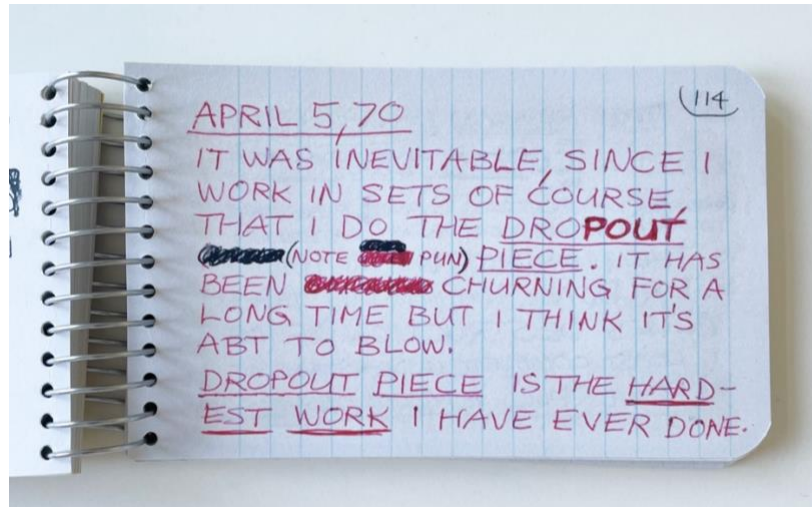 114
APRIL 5,70
IT WAS INEVITABLE, SINCE I
WORK IN SETS OF COURSE,
THAT I DO THE DROPOUT
(NOTE PUN) PIECE. IT HAS
BEEN CHURNING FOR A
LONG TIME BUT I THINK IT'S
ABT TO BLOW.
DROPOUT PIECE IS THE HARD-
EST WORK I HAVE EVER DONE.